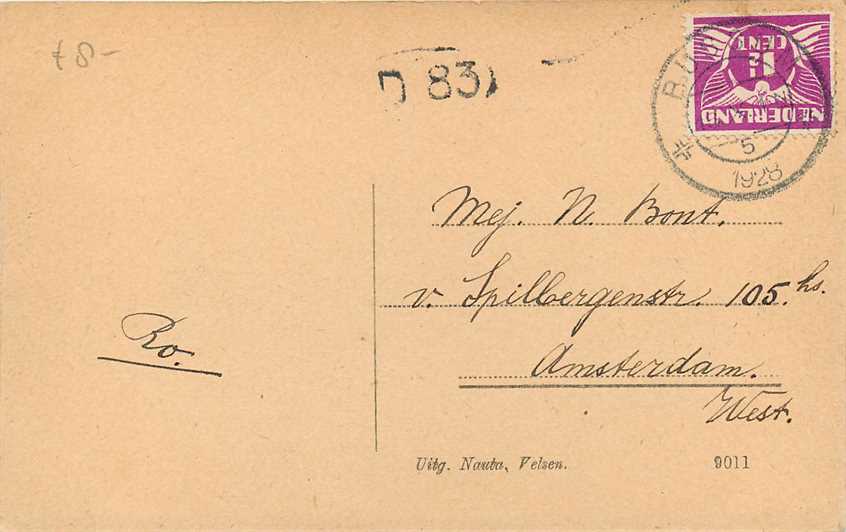 f 8-
D 83
1½
CENT
NEDERLAND
5
1928
Mej. N. Bont.
v. Spilbergenstr. 105.hs.
Amsterdam.
West.
Ro.
Uitg. Nauta, Velsen. 9011